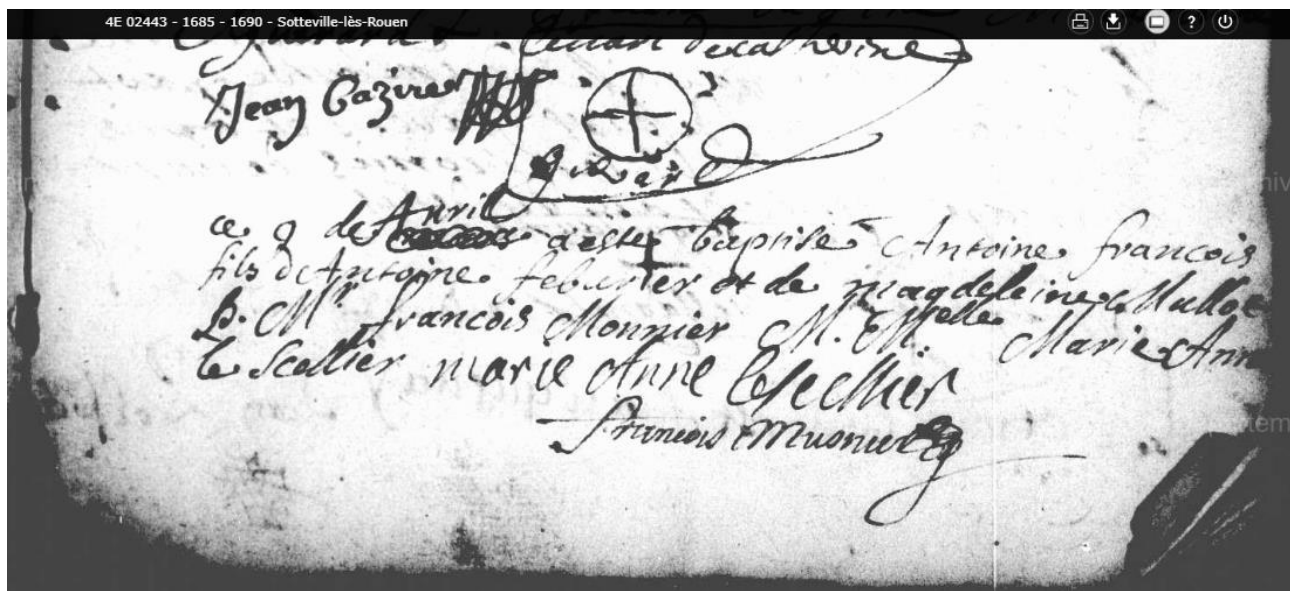 4E 02443 - 1685 - 1690 - Sotteville-lès-Rouen
?
Jean Cazire
ce 9 de Avril a esté baptisé Antoine francois
fils d'Antoine feburier et de magdeleine Mullot
P. Mr francois Monnier M. Melle Marie Ann
le Scellier marie Anne leSecllier
francois Musnier